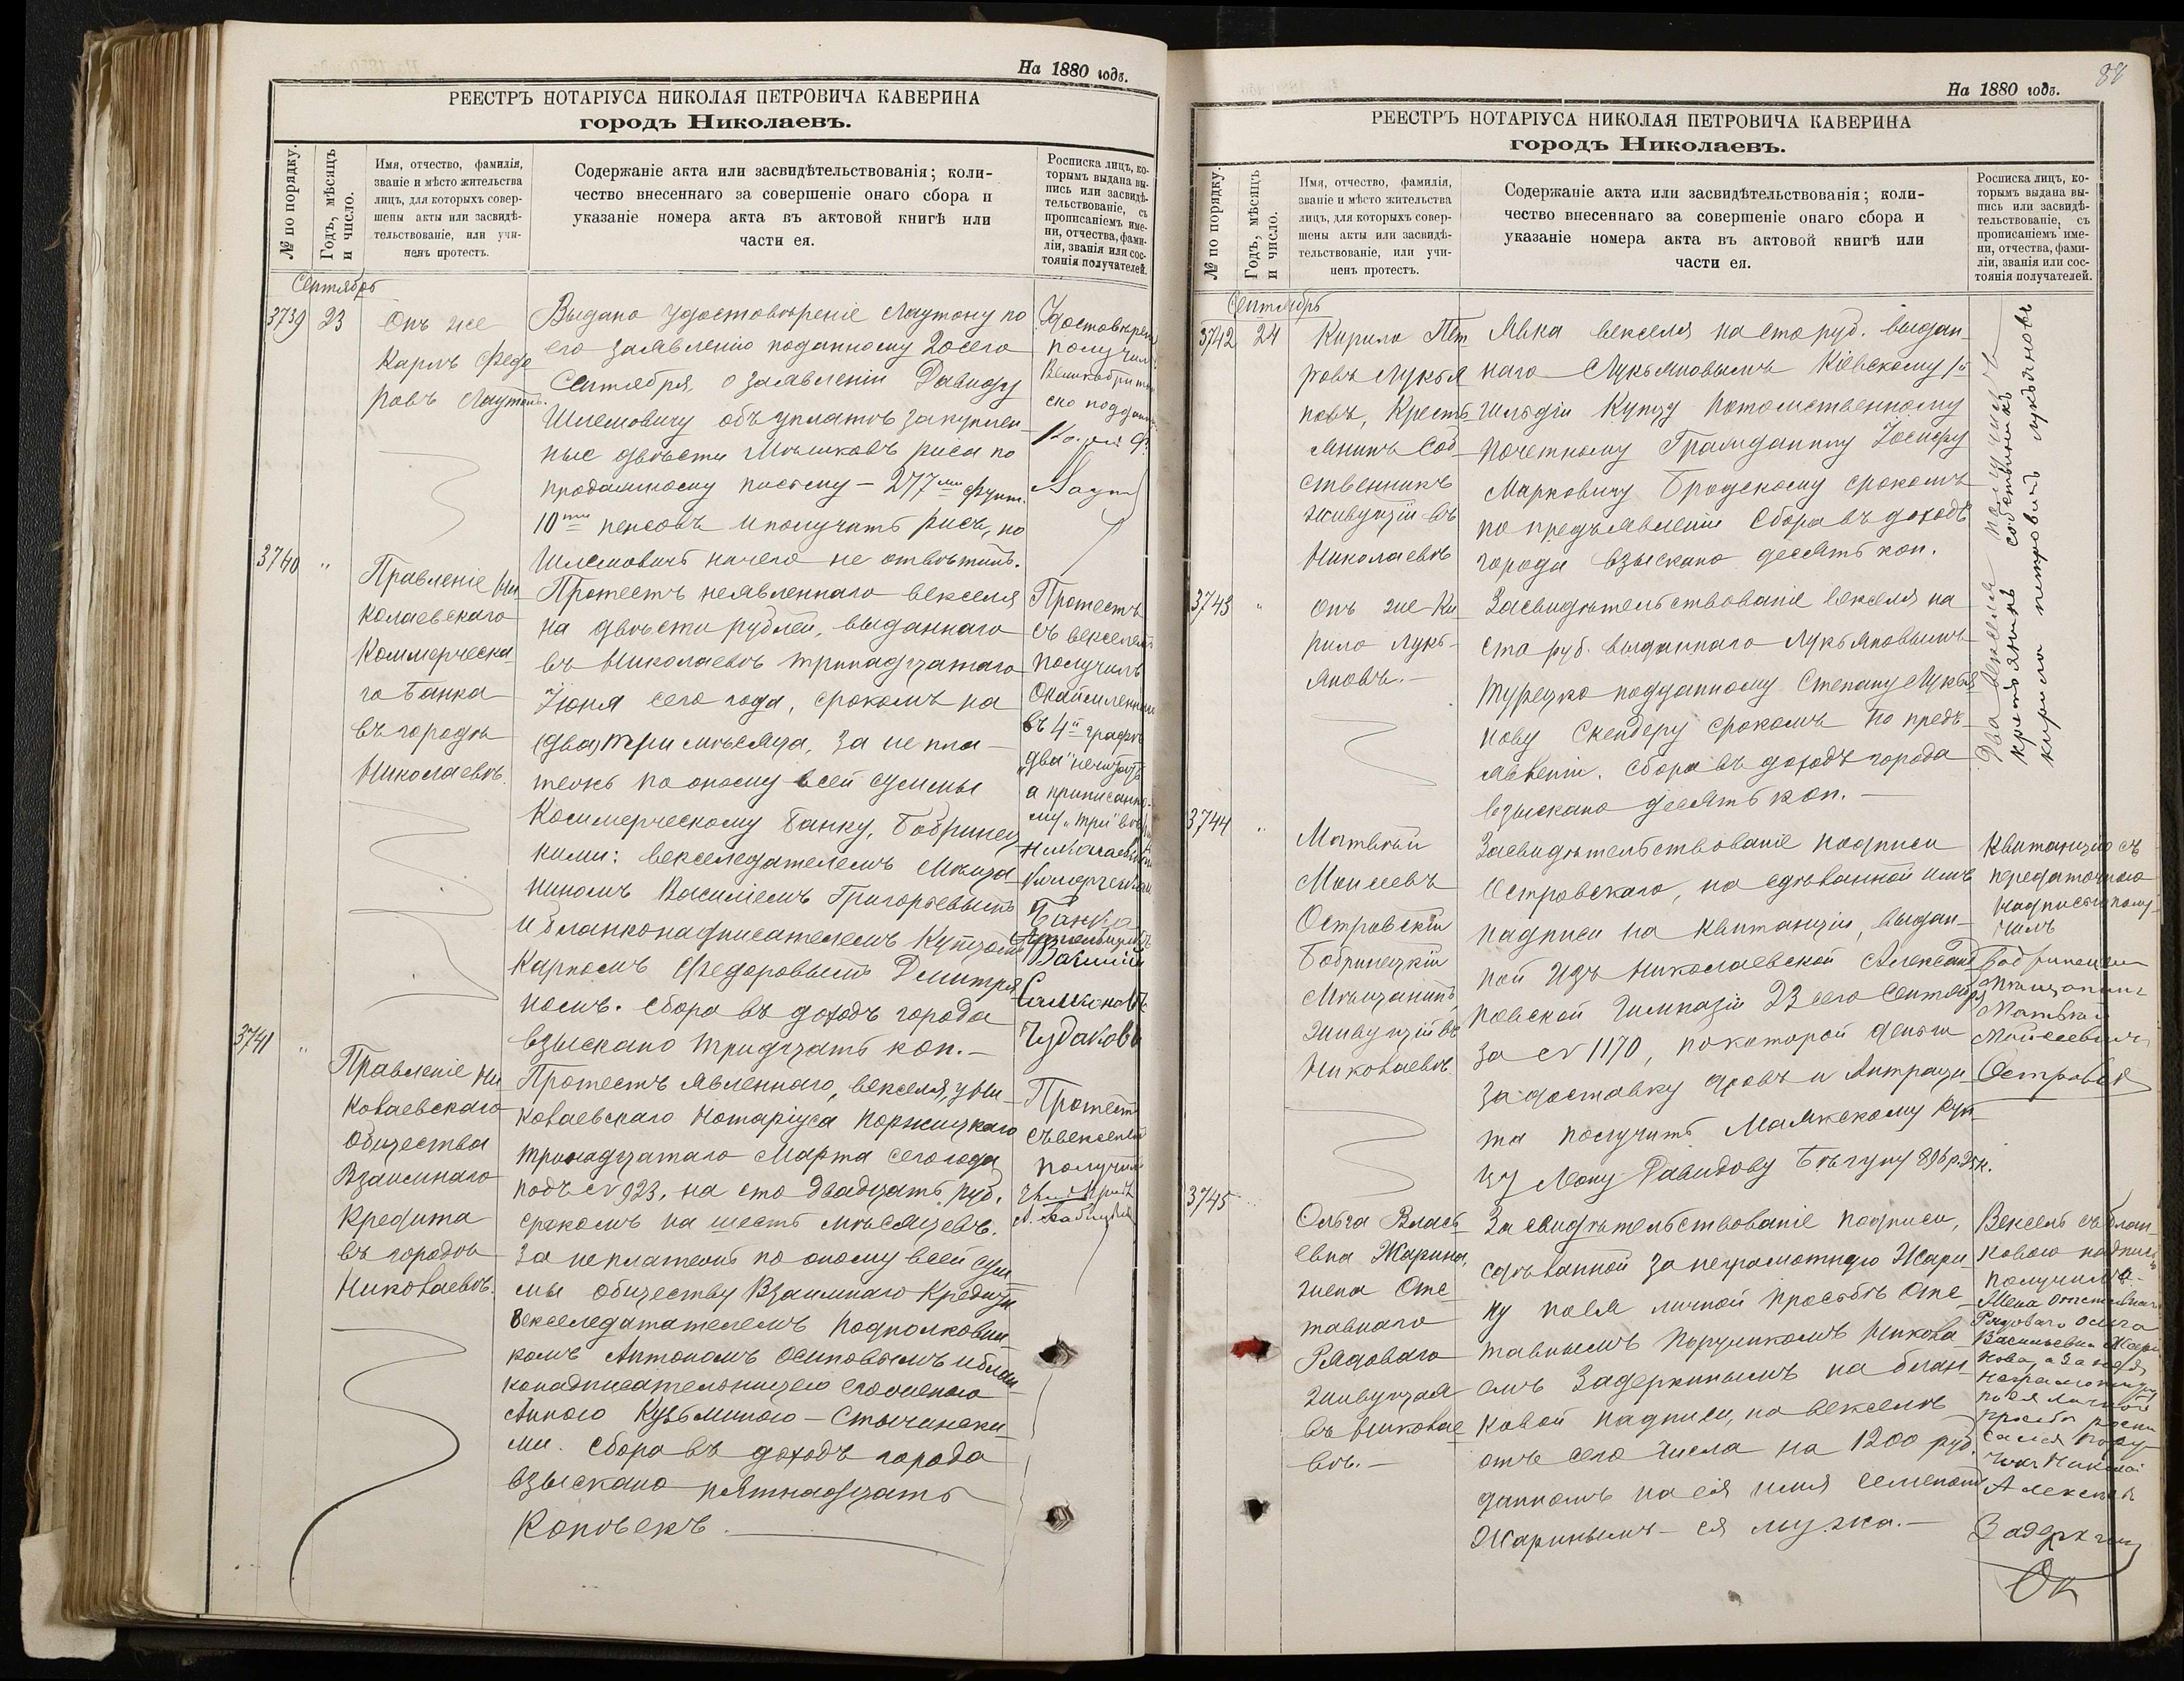 На 1880 годъ.
РЕЕСТРЪ НОТАРІУСА НИКОЛАЯ ПЕТРОВИЧА КАВЕРИНА
городъ Николаевъ.
№ по порядку.
Годъ, мѣсяцъ
и число.
Имя, отчество, фамилія,
званіе и мѣсто жительства
лицъ, для которыхъ совер-
шены акты или засвидѣ-
тельствованіе, или учи-
ненъ протестъ.
Содержаніе акта или засвидѣтельствованія; коли-
чество внесеннаго за совершеніе онаго сбора и
указаніе номера акта въ актовой книгѣ или
части ея.
Росписка лицъ, ко-
торымъ выдана вы-
пись или засвидѣ-
тельствованіе, съ
прописаніемъ име-
ни, отчества, фами-
ліи, званія или сос-
тоянія получателей.
Сентябрь
3739
23
Онъ же
Карлъ Федо
ровъ Лаутонъ.
Выдано удостовѣреніе Лаутону по
его заявленію поданному 20 сего
Сентября, о заявленіи Давиду
Шлемовичу объ уплатѣ за куплен-
ные двѣсти Мѣшковъ риса по
проданному постему - 277ми фунт.
10ти пенсовъ и получить рисъ, но
Шлемовичъ ничего не отвѣтилъ.
Удостовѣрен
получилъ
Великобритан
ско поддан
Карлъ Ф.
Лаут
3740
"
Правленіе Ни
колаевскаго
Коммерческа-
го Банка
въ городѣ
Николаевѣ.
Протестъ неявленнаго векселя
на двѣсти рублей, выданнаго
въ Николаевѣ тринадцатаго
Іюня сего года, срокомъ на
(два) три мѣсяца, за не пла-
тежъ по оному всей суммы
Коммерческому Банку, Бобринец
кими: векселедателемъ Мѣща-
ниномъ Василіемъ Григорьевымъ
и бланконадписателемъ Купцомъ
Карпомъ Федоровымъ Дмитрен
номъ. Сбора въ доходъ города
взыскано тридцать коп.-
Протестъ
съ векселемъ
получилъ
въ 4й графѣ
„два" нечитать
а приписанно-
му „три" вѣрить
Николаевскій
Коммерческій
Банка
Артельщикъ
Василій
Самсоновъ
Чудаковъ
3741
"
Правленіе Ни
колаевскаго
Общества
Взаимнаго
Кредита
въ городѣ
Николаевѣ.
Протестъ явленнаго, векселя, у Ни-
колаевскаго Нотаріуса Поржицкаго
тринадцатаго Марта сего года
подъ № 923, на сто двадцать руб.
срокомъ на шесть мѣсяцевъ.
За неплатежъ по оному всей сум
мы Обществу Взаимнаго Кредита
Векселедатателемъ Подполковни
комъ Антономъ Осиповымъ и блан
конадписательницею его женою
Анною Кузьминою - Стычински-
ми. Сбора въ доходъ города
взыскано пятнадцать
Копѣекъ.
Протестъ
съ векселемъ
получилъ
На 1880 годъ.
88
РЕЕСТРЪ НОТАРІУСА НИКОЛАЯ ПЕТРОВИЧА КАВЕРИНА
городъ Николаевъ.
№ по порядку.
Годъ, мѣсяцъ
и число.
Имя, отчество, фамилія,
званіе и мѣсто жительства
лицъ, для которыхъ совер-
шены акты или засвидѣ-
тельствованіе, или учи-
ненъ протестъ.
Содержаніе акта или засвидѣтельствованія; коли-
чество внесеннаго за совершеніе онаго сбора и
указаніе номера акта въ актовой книгѣ или
части ея.
Росписка лицъ, ко-
торымъ выдана вы-
пись или засвидѣ-
тельствованіе, съ
прописаніемъ име-
ни, отчества, фами-
ліи, званія или сос-
тоянія получателей.
Сентябрь
3742
24
Кирило Пет
ровъ Лукья
новъ, Кресть
янинъ Соб-
ственникъ
живущій въ
Николаевѣ
Явка векселя на сто руб. выдан-
наго Лукьяновымъ Кіевскому 1й
гильдіи Купцу Потомственному
Почетному Гражданину Іосифу
Марковичу Бродскому срокомъ
по предъявленіи Сбора въ доходъ
города взыскано десять коп.
Два векселя получилъ
крестьянинъ собственникъ
кирило петровичъ лукьяновъ
3743
"
Онъ же Ки
рило Лукь-
яновъ.-
Засвидѣтельствованіе векселя на
сто руб. выданнаго Лукьяновымъ
Турецко подданному Степану Лукья
нову Скендеру срокомъ по предъ-
явленіи. Сбора въ доходъ города
взыскано десять коп.-
3744
"
Матвѣй
Моисеевъ
Островскій
Бобринецкій
Мѣщанинъ
живущій въ
Николаевѣ
Засвидѣтельствованіе подписи
Островскаго, на сдѣланной имъ
надписи на квитанціи, выдан-
ной изъ Николаевской Алексан
ровской Гимназіи 23 сего Сентября
за № 1170, по которой деньги
за доставку дровъ и Антраци-
та получить Маякскому Куп
цу Леону Давидову Бѣгуну 896 р. 25 к.
Квитанцію съ
передаточною
надписью полу-
чилъ
Бобринецкій
Мѣщанинъ
Матвѣй
Моисеевичъ
Островскій
3745
Ольга Власъ
евна Жарина,
жена Отс-
тавнаго
Рядоваго
живущая
въ Николае
вѣ.-
Засвидѣтельствованіе подписи,
сдѣланной за неграмотную Жари-
ну по ея личной просьбѣ Отс-
тавнымъ Поручикомъ Никола-
емъ Задеркинымъ на блан-
ковой надписи, на векселѣ
отъ сего числа на 1200 руб.
данномъ на ея имя Семеномъ
Жаринымъ - ея мужа.-
Вексель съ блан-
ковою надписью
получила-
Жена отставнаго
Рядоваго Ольга
а за нея
неграмотную
по ея личной
просьбѣ роспи
сался Пору-
чикъ Николай
Алексѣевъ
Задеркинъ